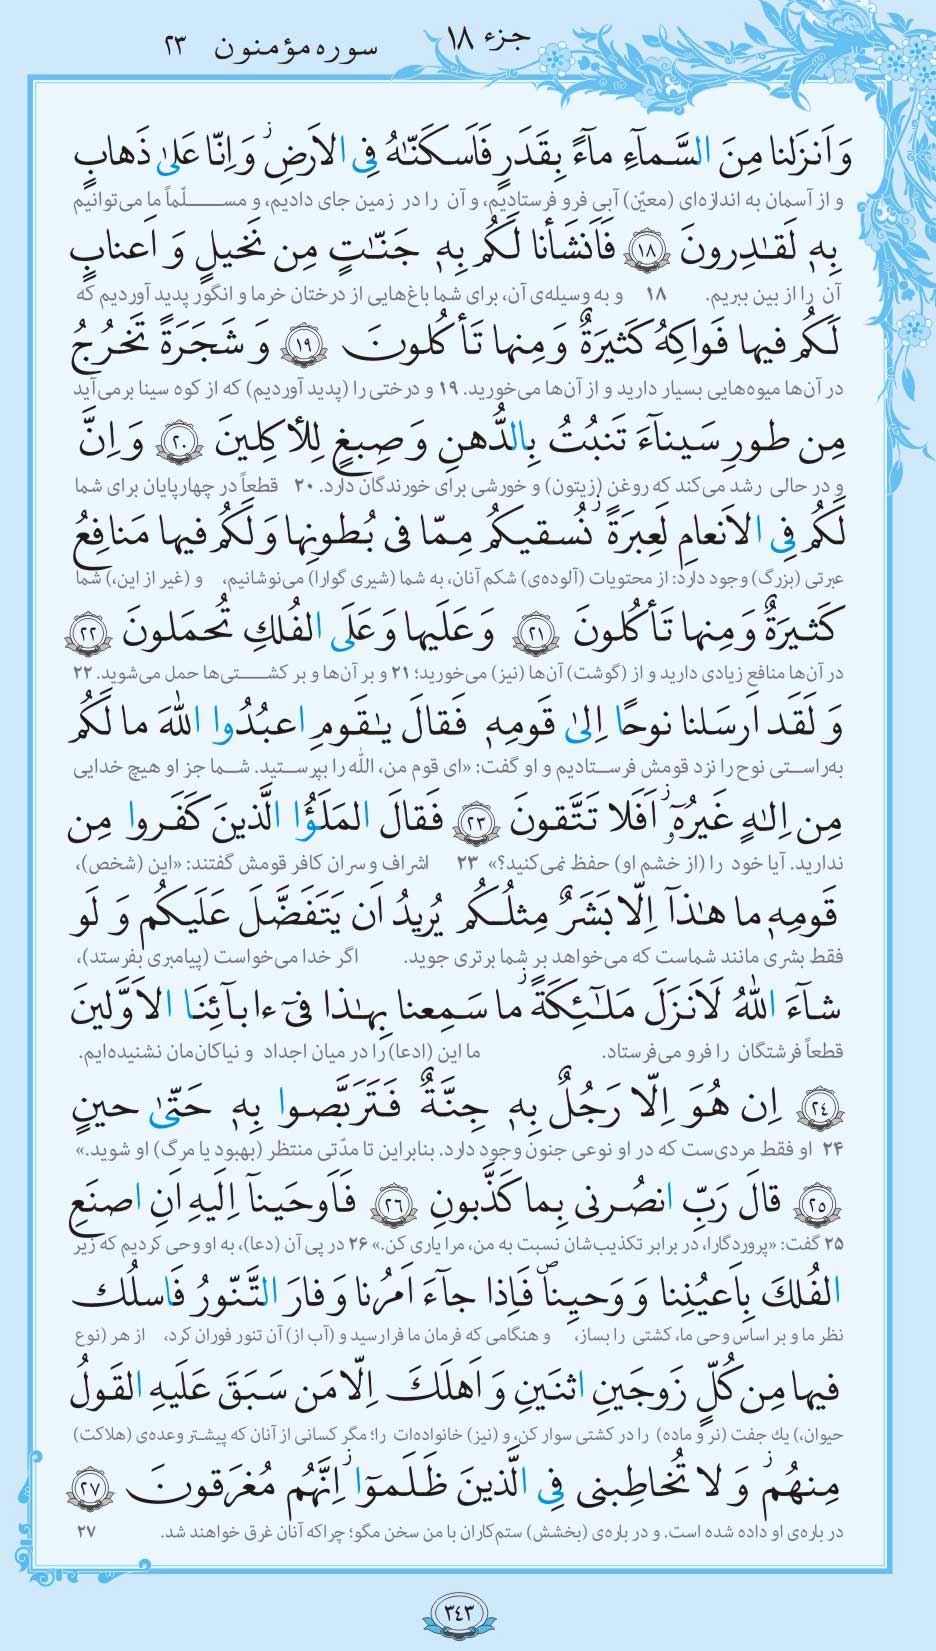 جزء ۱۸ سوره مؤمنون ۲۳
وَ اَنزَلنا مِنَ السَّمآءِ مآءً بِقَدَرٍ فَاَسكَنّٰهُ فِى الاَرضِ ۖ وَ اِنّا عَلىٰ ذَهابٍ
و از آسمان به اندازه‌ای (معیّن) آبی فرو فرستادیم، و آن را در زمین جای دادیم، و مسلّماً ما می‌توانیم
بِهٖ لَقٰدِرونَ ﴿۱۸﴾ فَاَنشَأنا لَكُم بِهٖ جَنّٰتٍ مِن نَخيلٍ وَ اَعنابٍ
آن را از بین ببریم. ۱۸ و به وسیله‌ی آن، برای شما باغ‌هایی از درختان خرما و انگور پدید آوردیم که
لَكُم فيها فَواكِهُ كَثيرَةٌ وَ مِنها تَأكُلونَ ﴿۱۹﴾ وَ شَجَرَةً تَخرُجُ
در آن‌ها میوه‌هایی بسیار دارید و از آن‌ها می‌خورید. ۱۹ و درختی را (پدید آوردیم) که از کوه سینا برمی‌آید
مِن طورِ سَيناءَ تَنبُتُ بِالدُّهنِ وَ صِبغٍ لِلأكِلينَ ﴿۲۰﴾ وَ اِنَّ
و در حالی رشد می‌کند که روغن (زیتون) و خورشی برای خورندگان دارد. ۲۰ قطعاً در چهارپایان برای شما
لَكُم فِى الاَنعامِ لَعِبرَةً ۖ نُسقيكُم مِمّا فى بُطونِها وَ لَكُم فيها مَنافِعُ
عبرتی (بزرگ) وجود دارد: از محتویات (آلوده‌ی) شکم آنان، به شما (شیری گوارا) می‌نوشانیم، و (غیر از این،) شما
كَثيرَةٌ وَ مِنها تَأكُلونَ ﴿۲۱﴾ وَ عَلَيها وَ عَلَى الفُلكِ تُحمَلونَ ﴿۲۲﴾
در آن‌ها منافع زیادی دارید و از (گوشت) آن‌ها (نیز) می‌خورید؛ ۲۱ و بر آن‌ها و بر کشتی‌ها حمل می‌شوید. ۲۲
وَ لَقَد اَرسَلنا نوحًا اِلىٰ قَومِهٖ فَقالَ يٰقَومِ اعبُدُوا اللّٰهَ ما لَكُم
به‌راستی نوح را نزد قومش فرستادیم و او گفت: «ای قوم من، الله را بپرستید. شما جز او هیچ خدایی
مِن اِلٰهٍ غَيرُهٗٓ ۖ اَفَلا تَتَّقونَ ﴿۲۳﴾ فَقالَ المَلَؤُا الَّذينَ كَفَروا مِن
ندارید. آیا خود را (از خشم او) حفظ نمی‌کنید؟» ۲۳ اشراف و سران کافر قومش گفتند: «این (شخص)،
قَومِهٖ ما هٰذآ اِلّا بَشَرٌ مِثلُكُم يُريدُ اَن يَتَفَضَّلَ عَلَيكُم وَ لَو
فقط بشری مانند شماست که می‌خواهد بر شما برتری جوید. اگر خدا می‌خواست (پیامبری بفرستد)،
شآءَ اللّٰهُ لَاَنزَلَ مَلٰٓئِكَةً ۖ ما سَمِعنا بِهٰذا فىٓ ءابآئِنَا الاَوَّلينَ
قطعاً فرشتگان را فرو می‌فرستاد. ما این (ادعا) را در میان اجداد و نیاکان‌مان نشنیده‌ایم.
﴿۲۴﴾ اِن هُوَ اِلّا رَجُلٌ بِهٖ جِنَّةٌ فَتَرَبَّصوا بِهٖ حَتّىٰ حينٍ
۲۴ او فقط مردی‌ست که در او نوعی جنون وجود دارد. بنابراین تا مدّتی منتظر (بهبود یا مرگ) او شوید.»
﴿۲۵﴾ قالَ رَبِّ انصُرنى بِما كَذَّبونِ ﴿۲۶﴾ فَاَوحَينآ اِلَيهِ اَنِ اصنَعِ
۲۵ گفت: «پروردگارا، در برابر تکذیب‌شان نسبت به من، مرا یاری کن.» ۲۶ در پی آن (دعا)، به او وحی کردیم که زیر
الفُلكَ بِاَعيُنِنا وَ وَحيِنا ۖ فَاِذا جآءَ اَمرُنا وَ فارَ التَّنّورُ فَاسلُك
نظر ما و بر اساس وحی ما، کشتی را بساز، و هنگامی که فرمان ما فرا رسید و (آب از) آن تنور فوران کرد، از هر (نوع
فيها مِن كُلٍّ زَوجَينِ اثنَينِ وَ اَهلَكَ اِلّا مَن سَبَقَ عَلَيهِ القَولُ
حیوان،) یك جفت (نر و ماده) را در کشتی سوار کن، و (نیز) خانواده‌ات را؛ مگر کسانی از آنان که پیشتر وعده‌ی (هلاکت)
مِنهُم ۖ وَ لا تُخاطِبنى فِى الَّذينَ ظَلَموٓا ۖ اِنَّهُم مُغرَقونَ ﴿۲۷﴾
در باره‌ی او داده شده است. و در باره‌ی (بخشش) ستم‌کاران با من سخن مگو؛ چراکه آنان غرق خواهند شد. ۲۷
۳۴۳